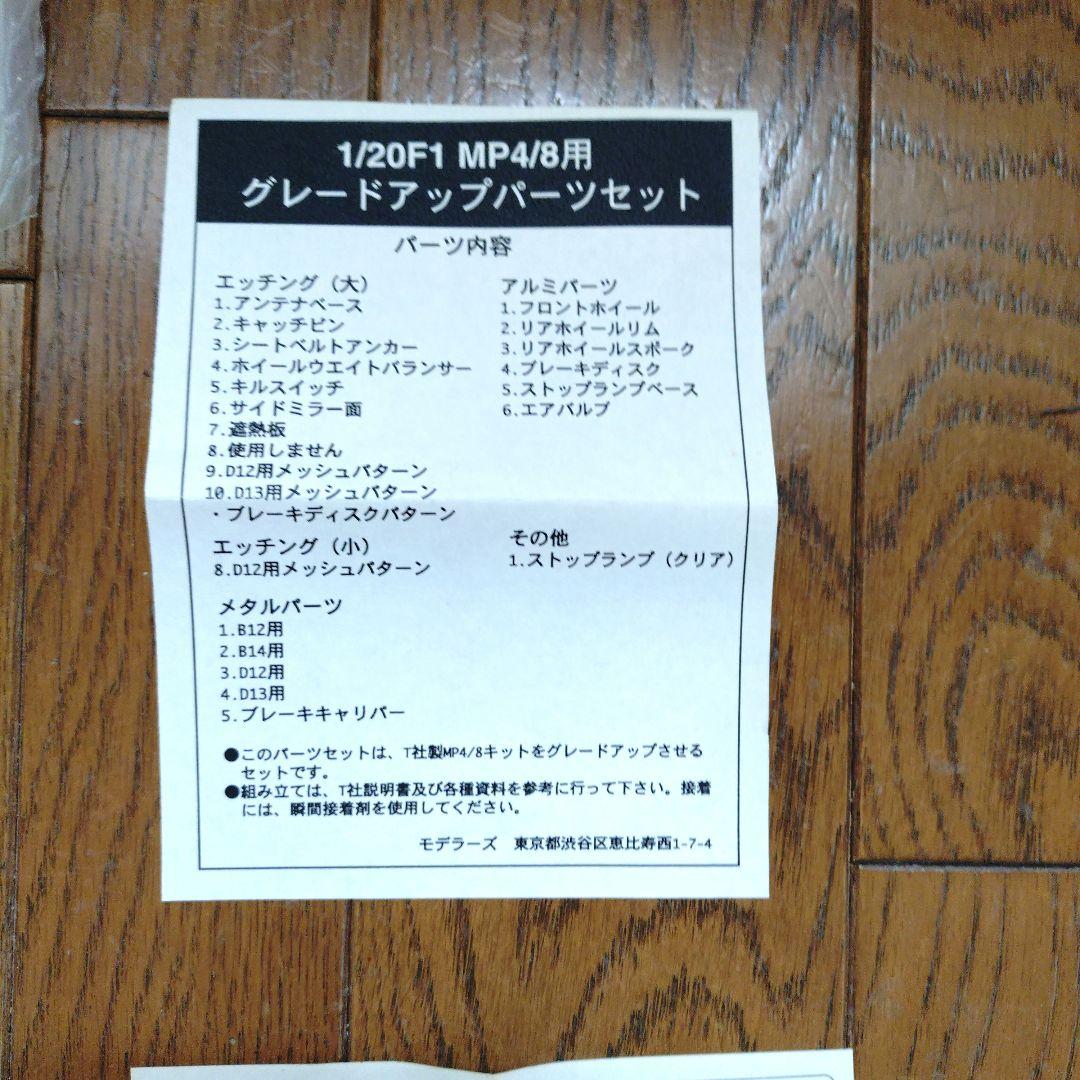 1/20F1 MP4/8用
グレードアップパーツセット
パーツ内容
エッチング（大）
1.アンテナベース
2.キャッチピン
3.シートベルトアンカー
4.ホイールウエイトバランサー
5.キルスイッチ
6.サイドミラー面
7.遮熱板
8.使用しません
9.D12用メッシュパターン
10.D13用メッシュパターン
・ブレーキディスクパターン
エッチング（小）
8.D12用メッシュパターン
メタルパーツ
1.B12用
2.B14用
3.D12用
4.D13用
5.ブレーキキャリパー
アルミパーツ
1.フロントホイール
2.リアホイールリム
3.リアホイールスポーク
4.ブレーキディスク
5.ストップランプベース
6.エアバルブ
その他
1.ストップランプ（クリア）
●このパーツセットは、T社製MP4/8キットをグレードアップさせる
セットです。
●組み立ては、T社説明書及び各種資料を参考に行って下さい。接着
には、瞬間接着剤を使用してください。
モデラーズ 東京都渋谷区恵比寿西1-7-4